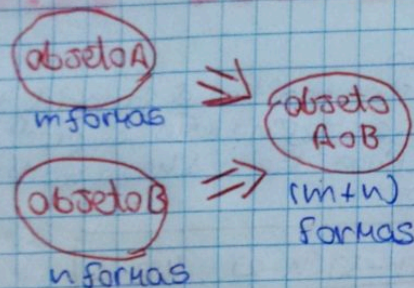 objeto A
m formas
objeto B
n formas
objeto
A o B
(m+n)
formas